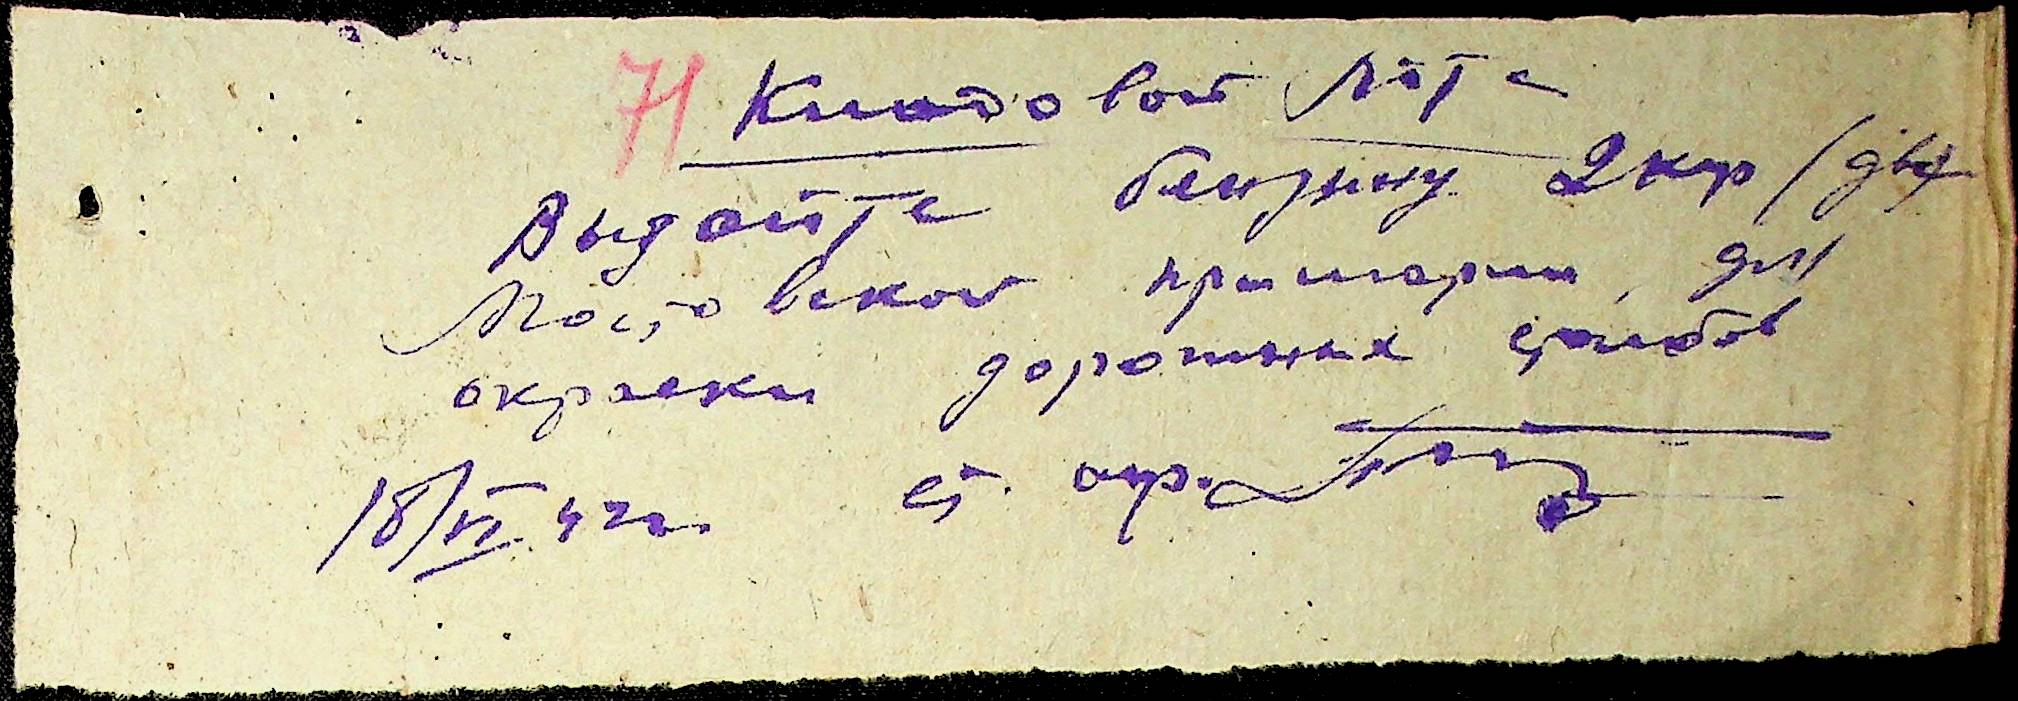 71 Кладовой МТС
Выдайте бензину 2 кгр (два
Мостовской примарии, для
окраски дорожных столбов
18/VI 42 г. ст. агр.